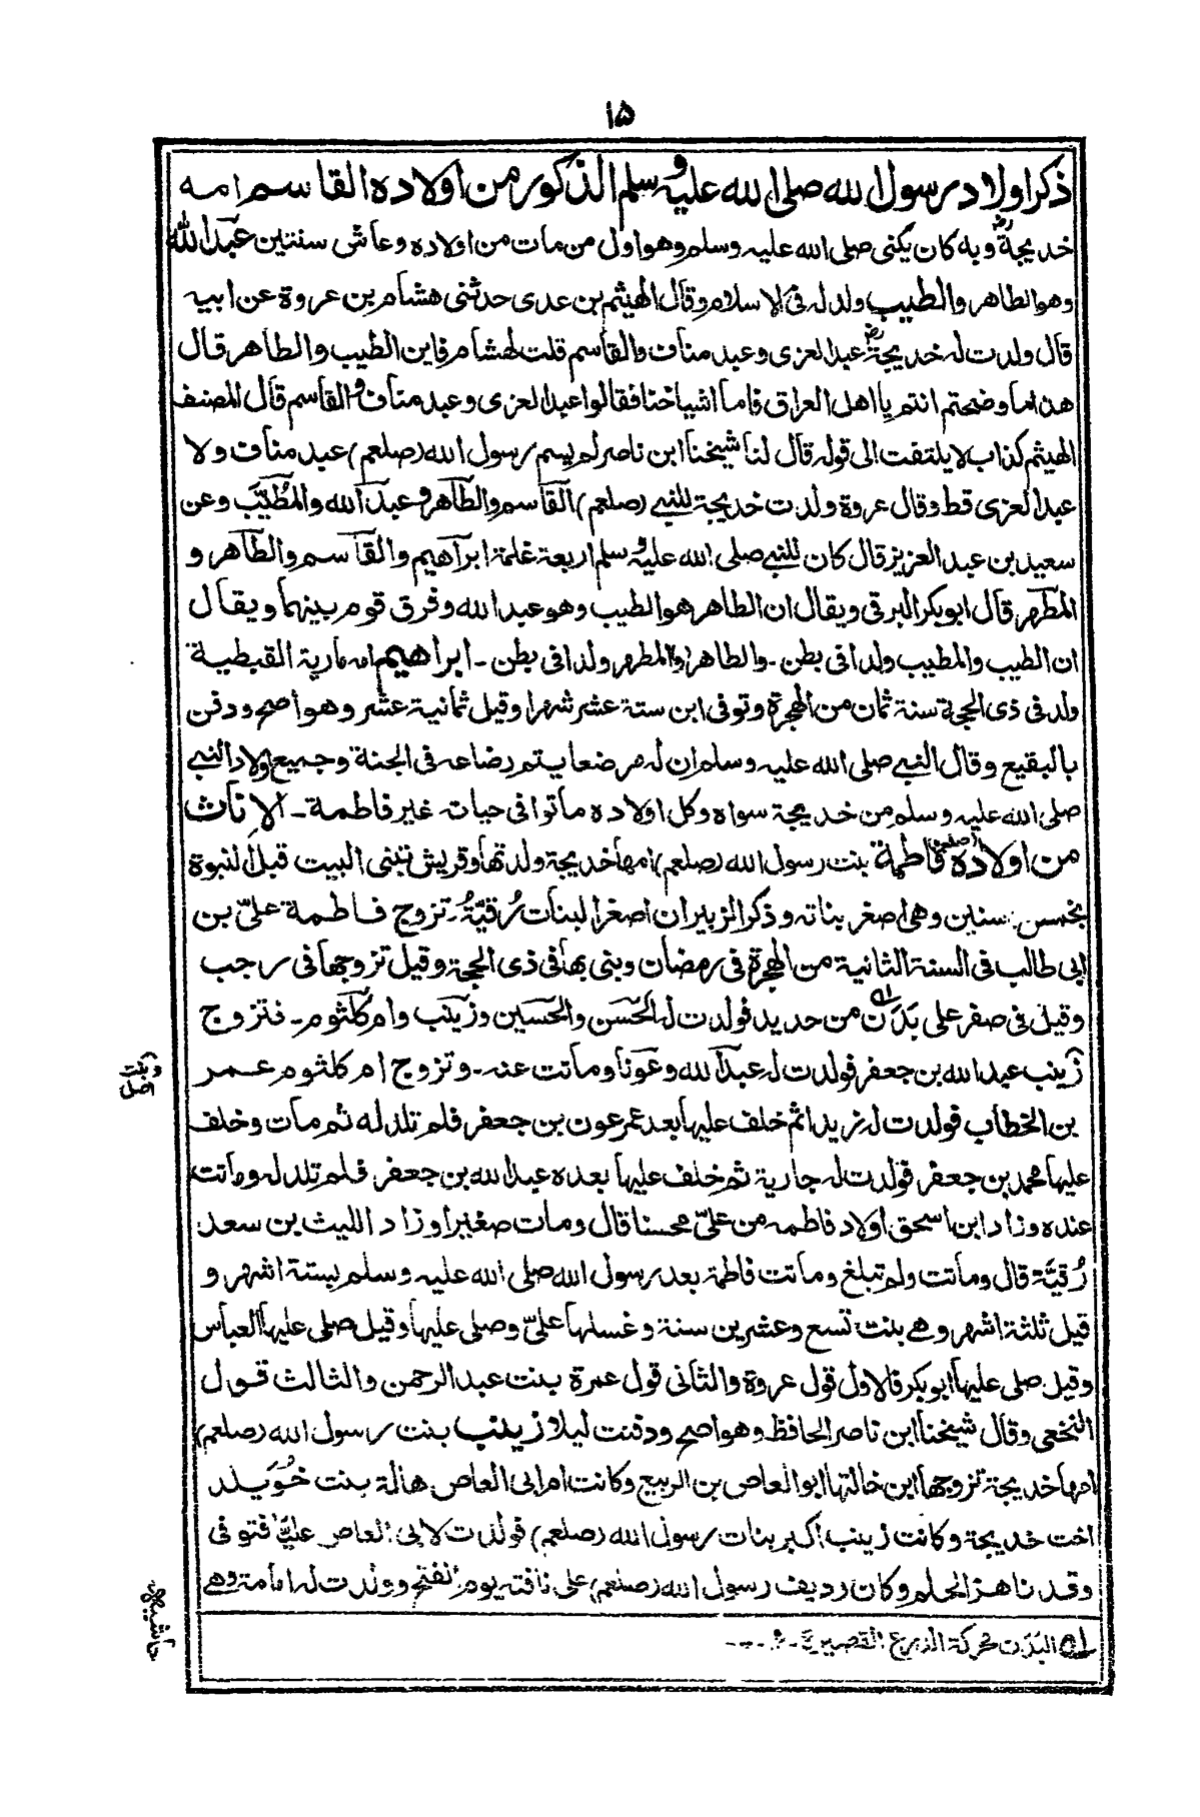 ۱۵
ذكر اولاد رسول الله صلى الله عليه وسلم الذكور من اولاده القاسم امه
خديجة رض وبه كان يكنى صلى الله عليه وسلم وهو اول من مات من اولاده وعاش سنتين عبد الله
وهو الطاهر والطيب ولد له فى الاسلام وقال الهيثم بن عدى حدثنى هشام بن عروة عن ابيه
قال ولدت له خديجة رض عبد العزى وعبد مناف والقاسم قلت لهشام فاين الطيب والطاهر قال
هذا ما وضحتم انتم يا اهل العراق فاما اشياخنا فقالوا عبد العزى وعبد مناف والقاسم قال المصنف
الهيثم كذاب لا يلتفت الى قوله قال لنا شيخنا ابن ناصر لم يسم رسول الله (صلعم) عبد مناف ولا
عبد العزى قط وقال عروة ولدت خديجة للنبى (صلعم) القاسم والطاهر وعبد الله والمطيَّب وعن
سعيد بن عبد العزيز قال كان للنبى صلى الله عليه وسلم اربعة غلمة ابراهيم والقاسم والطاهر و
المطهر قال ابو بكر البرقى ويقال ان الطاهر هو الطيب وهو عبد الله وفرق قوم بينهما ويقال
ان الطيب والمطيب ولدا فى بطن ـ والطاهر والمطهر ولدا فى بطن ـ ابراهيم امه مارية القبطية
ولد فى ذى الحجة سنة ثمان من الهجرة وتوفى ابن ستة عشر شهرا وقيل ثمانية عشر وهو اصح ودفن
بالبقيع وقال النبى صلى الله عليه وسلم ان له مرضعا يتم رضاعه فى الجنة وجميع اولاد النبى
صلى الله عليه وسلم من خديجة سواه وكل اولاده ماتوا فى حياته غير فاطمة ـ الاناث
من اولاده (صلعم) فاطمة بنت رسول الله (صلعم) امها خديجة ولدتها وقريش تبنى البيت قبل النبوة
بخمس سنين وهى اصغر بناته وذكر الزبير ان اصغر البنات رُقيَّةُ ـ تزوج فاطمة علىّ بن
ابى طالب فى السنة الثانية من الهجرة فى رمضان وبنى بها فى ذى الحجة وقيل تزوجها فى رجب
وقيل فى صفر على بَدَنٍ ١ه من حديد فولدت له الحسَن والحسَين وزينب وام كلثوم ـ فتزوج
زينب عبد الله بن جعفر فولدت له عبد الله وعونا وماتت عنده ـ وتزوج ام كلثوم عمر
بن الخطاب فولدت له زيدا ثم خلف عليها بعد عمر عون بن جعفر فلم تلد له ثم مات وخلف
عليها محمد بن جعفر فولدت له جارية ثم خلف عليها بعده عبد الله بن جعفر فلم تلد له وماتت
عنده وزاد ابن اسحق اولاد فاطمه من علىّ محسنا قال ومات صغيرا وزاد الليث بن سعد
رُقيَّة قال وماتت ولم تبلغ وماتت فاطمة بعد رسول الله صلى الله عليه وسلم بستة اشهر و
قيل ثلثة اشهر وهى بنت تسع وعشرين سنة وغسلها علىّ وصلى عليها وقيل صلى عليها العباس
وقيل صلى عليها ابو بكر فالاول قول عروة والثانى قول عمرة بنت عبد الرحمن والثالث قول
النخعى وقال شيخنا ابن ناصر الحافظ وهو اصح ودفنت ليلا زينب بنت رسول الله (صلعم)
امها خديجة تزوجها ابن خالتها ابو العاص بن الربيع وكانت ام ابى العاص هالة بنت خُوَيلد
اخت خديجة وكانت زينب اكبر بنات رسول الله (صلعم) فولدت لابى العاص عليًّا فتوفى
وقد ناهز الحلم وكان رديف رسول الله (صلعم) على ناقته يوم الفتح وولدت له امامة وهى
١ه البَدَن محركة الدرع القصيرة ـ
حاشيه